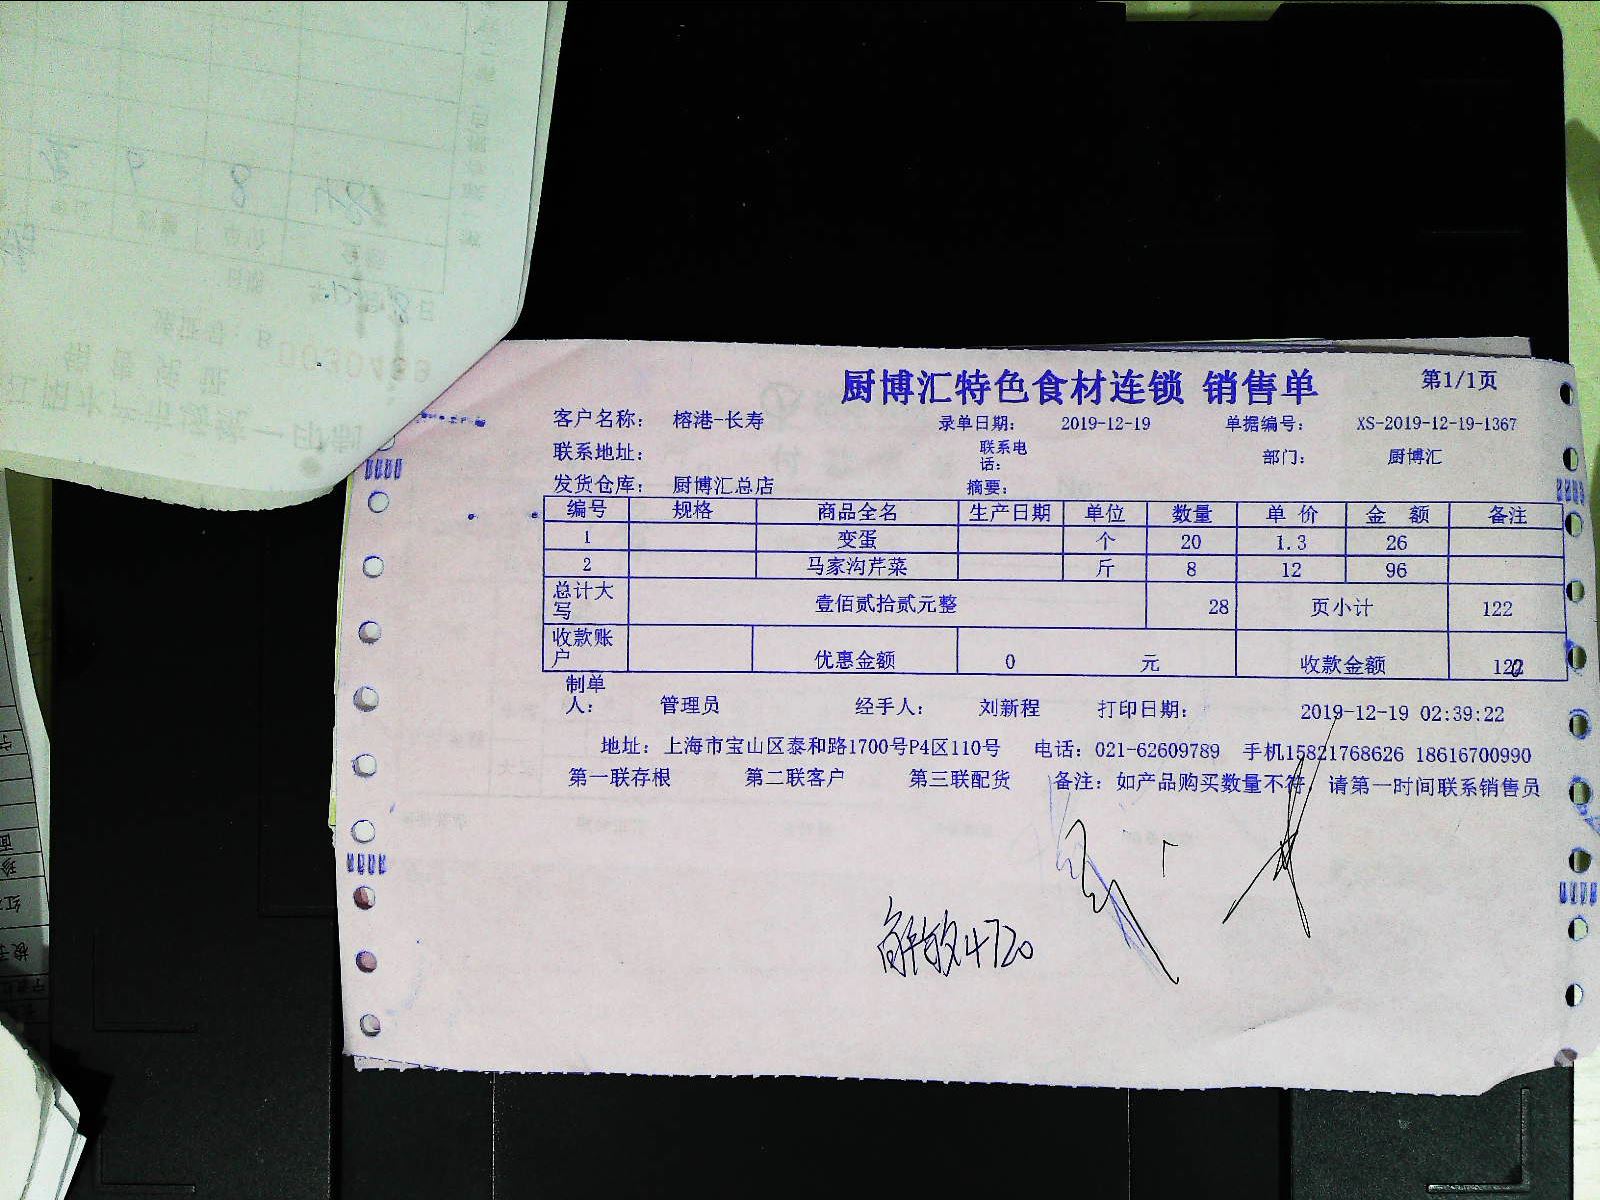 厨博汇特色食材连锁 销售单 第1/1页
客户名称： 榕港-长寿 录单日期： 2019-12-19 单据编号： XS-2019-12-19-1367
联系地址： 联系电话： 部门： 厨博汇
发货仓库： 厨博汇总店 摘要：
编号 规格 商品全名 生产日期 单位 数量 单 价 金 额 备注
1 变蛋 个 20 1.3 26
2 马家沟芹菜 斤 8 12 96
总计大写 壹佰贰拾贰元整 28 页小计 122
收款账户 优惠金额 0 元 收款金额 122
制单人： 管理员 经手人： 刘新程 打印日期： 2019-12-19 02:39:22
地址：上海市宝山区泰和路1700号P4区110号 电话：021-62609789 手机15821768626 18616700990
第一联存根 第二联客户 第三联配货 备注：如产品购买数量不符，请第一时间联系销售员
解放4720